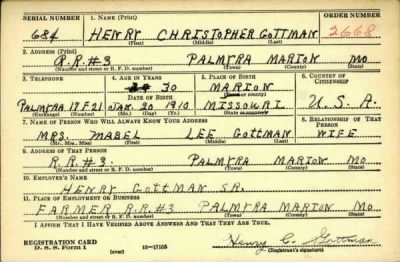 SERIAL NUMBER 1. NAME (Print) ORDER NUMBER
684 HENRY CHRISTOPHER GOTTMAN 2668
(First) (Middle) (Last)
2. ADDRESS (Print)
R.R.#3 PALMYRA MARION MO
(Number and street or R. F. D. number) (Town) (County) (State)
3. TELEPHONE 4. AGE IN YEARS 5. PLACE OF BIRTH 6. COUNTRY OF CITIZENSHIP
30 MARION
DATE OF BIRTH (Town or county)
PALMYRA 17F21 JAN. 20 1910 MISSOURI U.S.A.
(Exchange) (Number) (Mo.) (Day) (Yr.) (State or country)
7. NAME OF PERSON WHO WILL ALWAYS KNOW YOUR ADDRESS 8. RELATIONSHIP OF THAT PERSON
MRS. MABEL LEE GOTTMAN WIFE
(Mr., Mrs., Miss) (First) (Middle) (Last)
9. ADDRESS OF THAT PERSON
R.R.#3. PALMYRA MARION MO.
(Number and street or R. F. D. number) (Town) (County) (State)
10. EMPLOYER'S NAME
HENRY GOTTMAN SR.
11. PLACE OF EMPLOYMENT OR BUSINESS
FARMER R.R.#3 PALMYRA MARION MO
(Number and street or R. F. D. number) (Town) (County) (State)
I AFFIRM THAT I HAVE VERIFIED ABOVE ANSWERS AND THAT THEY ARE TRUE.
REGISTRATION CARD
D. S. S. Form 1 (over) 16—17105 Henry C. Gottman
(Registrant's signature)